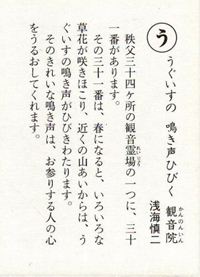 う
うぐいすの 鳴き声ひびく 観音院
かんのんいん
浅海慎二
秩父三十四ヶ所の観音霊場の一つに、三十
れいじょう
一番があります。
その三十一番は、春になると、いろいろな
草花が咲きほこり、近くの山あいからは、う
ぐいすの鳴き声がひびきわたります。
そのきれいな鳴き声は、お参りする人の心
をうるおしてくれます。